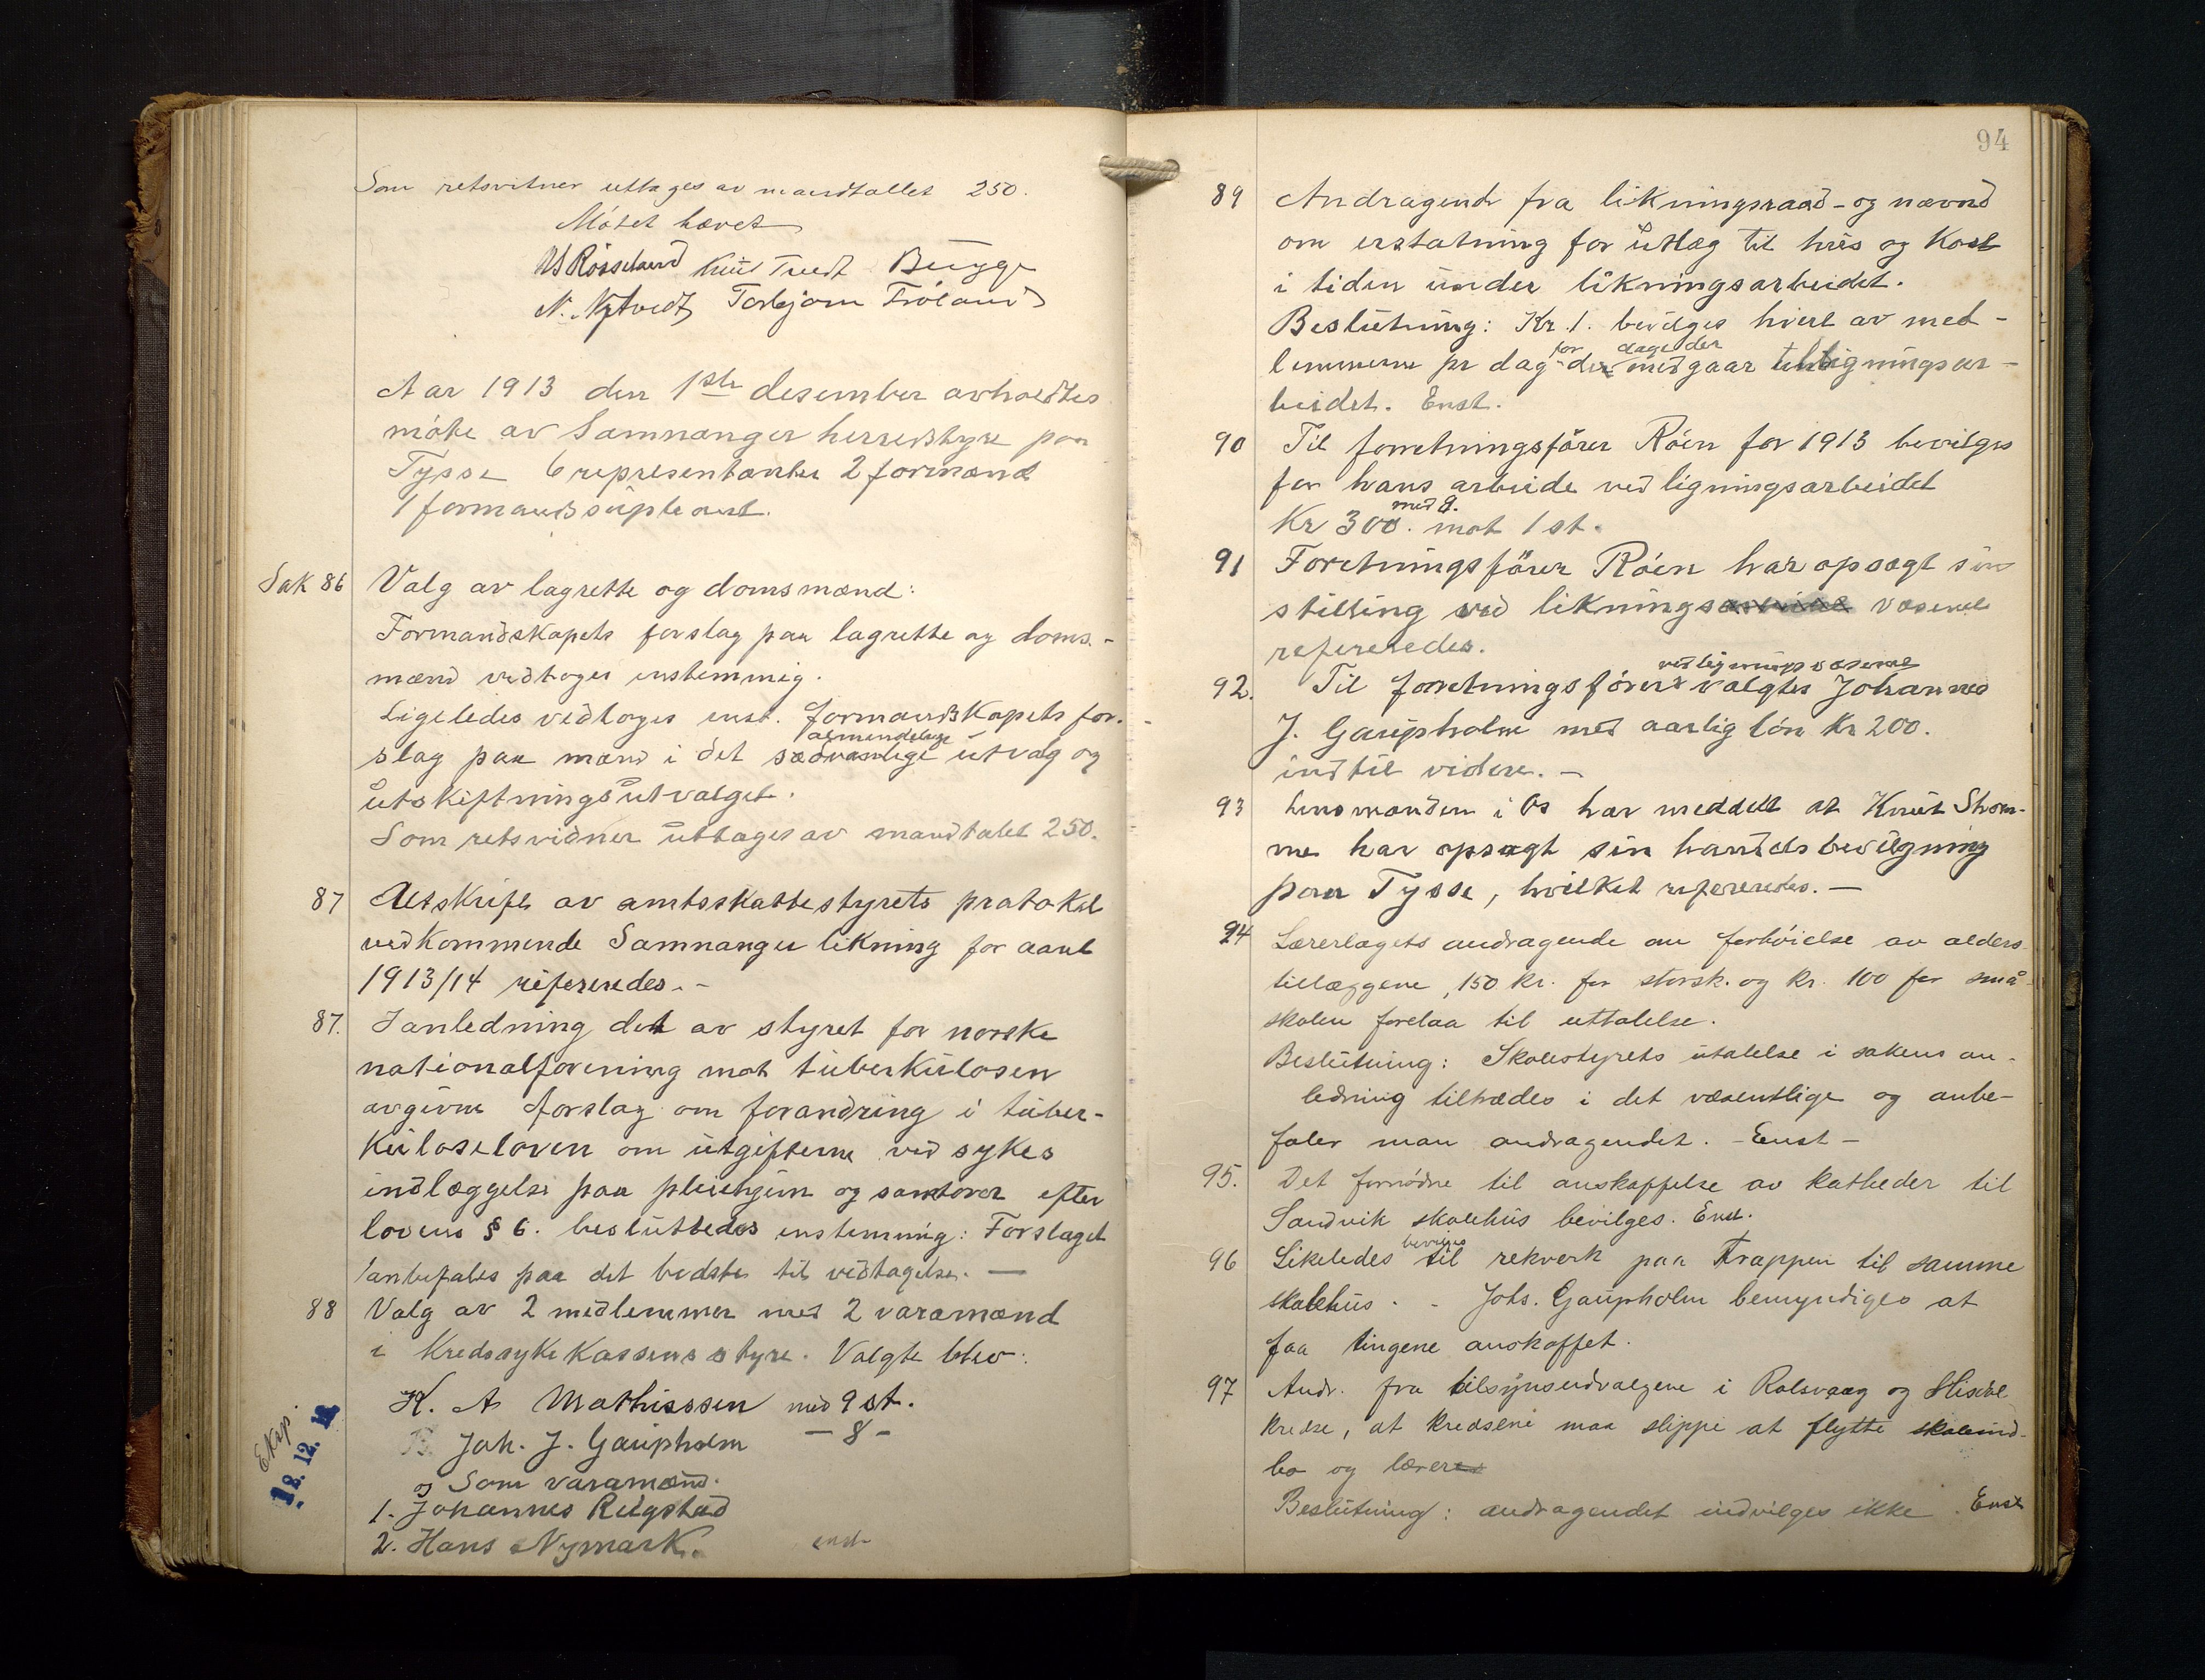 Som retsvitner uttages av mandtallet 250.
Møtet hævet
Knut Tvedt Bugge
N. Nytvedt Torbjørn Frøland
Aar 1913 den 1ste desember avholdtes
møte av Samnanger herredstyre paa
Tysse 6 representanter 2 formænd
1 formandsupleant.
Sak 86 Valg av lagrette og domsmænd:
Formandskapets forslag paa lagrette og doms-
mænd vedtoges enstemmig.
Ligeledes vedtoges enst. formandskapets for-
slag paa mænd i det sædvanlige almindelige utvalg og
utskiftningsutvalget.
Som retsvidner uttages av mandtalet 250.
87 Utskrift av amtsskattestyrets protokol
vedkommende Samnanger likning for aaret
1913/14 refereredes. -
87. I anledning det av styret for norske
nationalforening mot tuberkulosen
avgivne forslag om forandring i tuber-
kuloseloven om utgifterne ved sykes
indlæggelse paa pleiehjem og efter
lovens § 6. besluttedes enstemmig: Forslaget
anbefales paa det bedste til vedtagelse. —
88 Valg av 2 medlemmer med 2 varamænd
i Kredssykekassens styre. Valgte blev:
K. A Mathissen med 9 st.
Joh. J. Gaupholm — 8 -
og Som varamænd.
1. Johannes Rilgstad
2. Hans Nymark. enst-
Eksp.
12. 12. 13
94
89 Andragende fra likningsraad- og nævnd
om erstatning for utlæg til hus og kost
i tiden under likningsarbeidet.
Beslutning: Kr. 1. bevilges hver av med-
lemmerne pr dag for dage der der medgaar til ligningsar-
beidet. Enst.
90 Til forretningsfører Røen for 1913 bevilges
for hans arbeide ved ligningsarbeidet
Kr 300. med 8. mot 1 st.
91 Foretningsfører Røen har opsagt sin
stilling ved liknings væsenet
refereredes.
92. Til forretningsfører ved ligningsvæsenet valgtes Johannes
J. Gaupholm med aarlig løn Kr 200.
indtil videre. —
93 Lensmanden i Os har meddelt at Knut Strøm-
me har opsagt sin handelsbevilgning
paa Tysse, hvilket refereredes. —
94 Lærerlagets andragende om forhøielse av alders-
tillæggene, 150 kr. for storsk. og kr. 100 for små-
skolen forelaa til uttalelse.
Beslutning: Skolestyrets utalelse i sakens an-
ledning tiltrædes i det væsentlige og anbe-
faler man andragendet. - Enst -
95. Det fornødne til anskaffelse av katheder til
Sandvik skolehus bevilges. Enst.
96 Likeledes bevilges til rekverk paa trappen til samme
skolehus. - Johs. Gaupholm bemyndiges at
faa tingene anskaffet.
97 Andr. fra tilsynsudvalgene i Rolsvaag og
kredse, at kredsene maa slippe at flytte skoleind-
bo og lærere
Beslutning: andragendet indvilges ikke. Enst